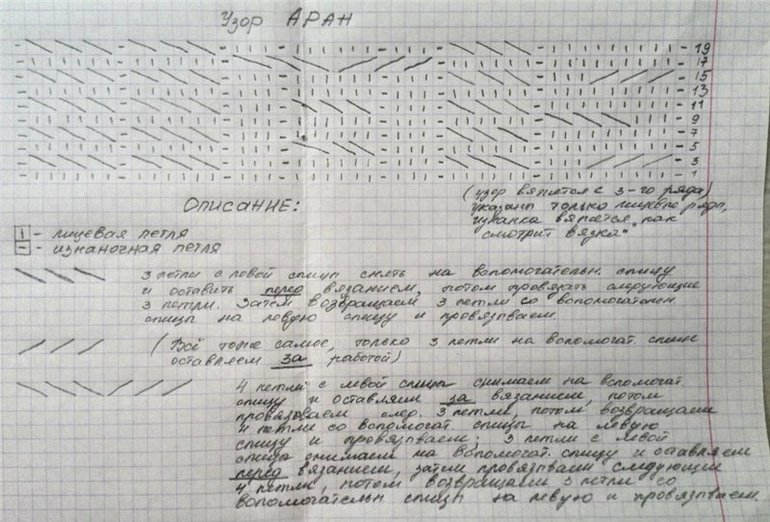 Узор АРАН
19
17
15
13
11
9
7
5
3
1
(узор вяжется с 3-го ряда)
указаны только лицевые ряды,
изнанка вяжется "как
смотрит вязка"
Описание:
| - лицевая петля
- - изнаночная петля
3 петли с левой спицы снять на вспомогательн. спицу
и оставить перед вязанием, потом провязать следующие
3 петли. Затем возвращаем 3 петли со вспомогательн.
спицы на левую спицу и провязываем
(Всё тоже самое, только 3 петли на вспомогат. спице
оставляем за работой)
4 петли с левой спицы снимаем на вспомогат.
спицу и оставляем за вязанием, потом
провязываем след. 3 петли, потом возвращаем
4 петли со вспомогат. спицы на левую
спицу и провязываем; 3 петли с левой
спицы снимаем на вспомогат. спицу и оставляем
перед вязанием, затем провязываем следующии
4 петли, потом возвращаем 3 петли со
вспомогательн спицы на левую и провязываем.